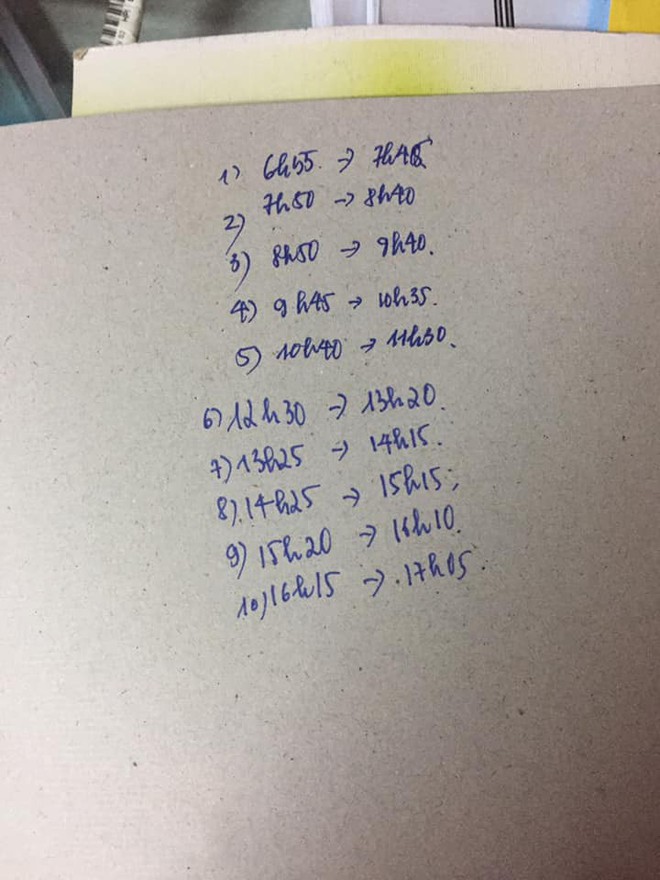 1) 6h55 → 7h45
2) 7h50 → 8h40
3) 8h50 → 9h40.
4) 9h45 → 10h35.
5) 10h40 → 11h30.
6) 12h30 → 13h20.
7) 13h25 → 14h15.
8) 14h25 → 15h15;
9) 15h20 → 16h10.
10) 16h15 → 17h05.